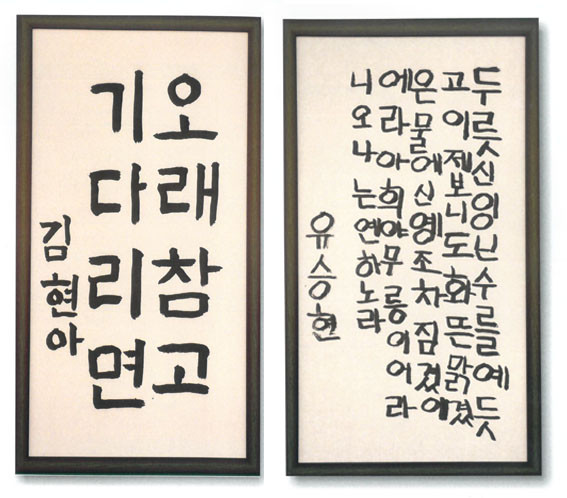 오래참고
기다리면
김현아
두릇신잉닌수를예듯
고이제보니도화뜬맑겼
은물에신영조차짐겼에
에라아희야무릉이어라
니오나는연하노라
유승현